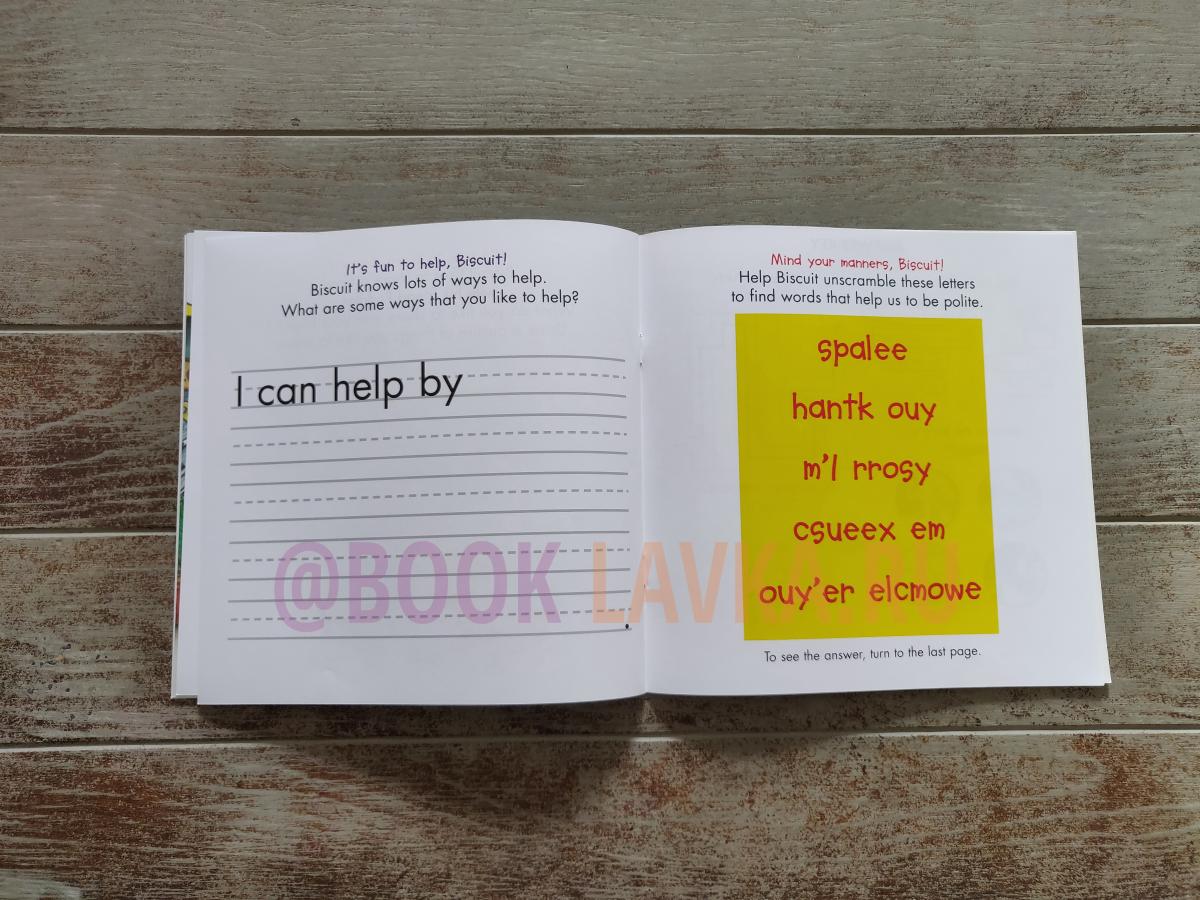 It's fun to help, Biscuit!
Biscuit knows lots of ways to help.
What are some ways that you like to help?
I can help by
.
Mind your manners, Biscuit!
Help Biscuit unscramble these letters
to find words that help us to be polite.
spalee
hantk ouy
m'I rrosy
csueex em
ouy'er elcmowe
To see the answer, turn to the last page.
@BOOK LAVKA.RU